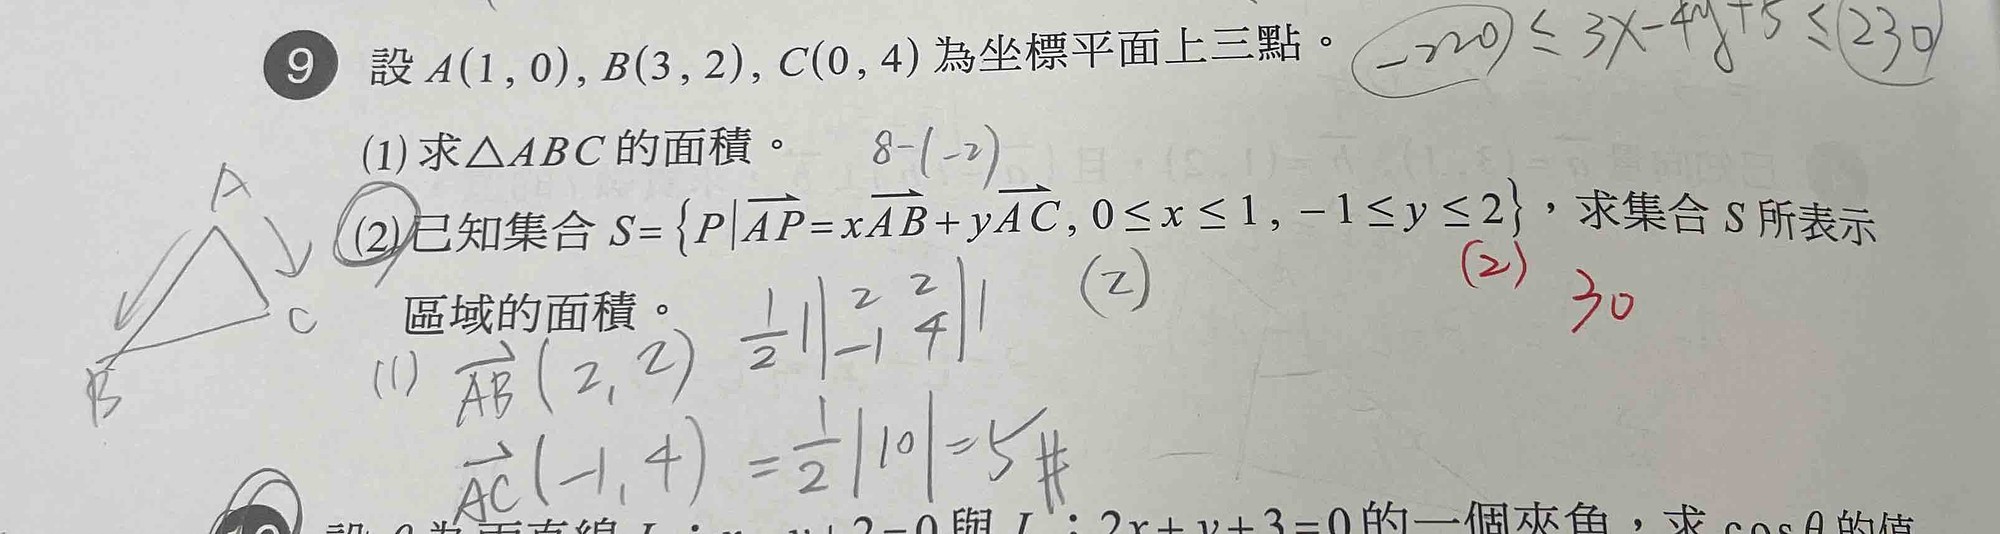 9 設 A(1, 0), B(3, 2), C(0, 4) 為坐標平面上三點。 -220 ≤ 3x-4y+5 ≤ 230
(1) 求△ABC 的面積。 8-(-2)
(2) 已知集合 S={P|AP=xAB+yAC, 0≤x≤1, -1≤y≤2}，求集合 S 所表示
區域的面積。
(2)
(2) 30
A
B
C
(1) AB(2, 2) 1/2||2 2 -1 4||
AC(-1, 4) =1/2|10|=5#
0 與 L : 2x+y+3=0 的一個夾角，求 cosθ 的值